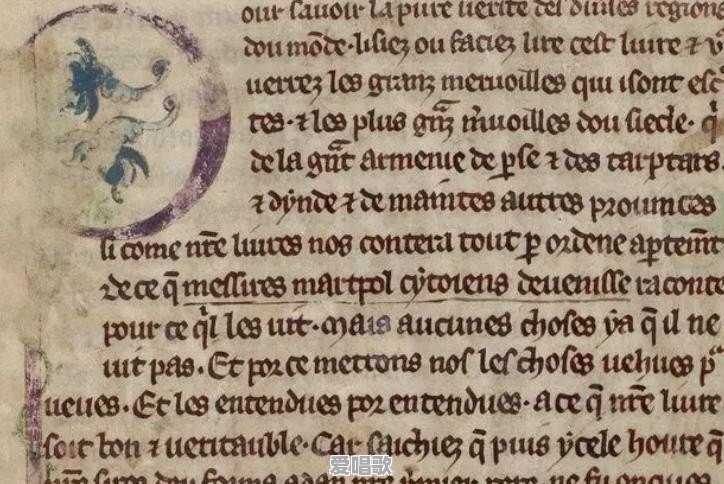 our sauoir la pure uerite des diuises regions
dou mōde · lisiez ou faciez lire cest liure ⁊
uerrez les granz meruoilles qui isont esc
tes · ⁊ les plus gͣnz m̃uoilles dou siecle · q̃
de la gͣnt armenie de ꝑse ⁊ des tarptars.
⁊ dynde ⁊ de maintes autres prouinces
si come nr̃e liures nos contera tout ꝑ ordene aptemt̃
de ce q̃ messires martpol cytoiens deuenisse raconte
pour ce q̃l les uit · Mais aucunes choses ya q̃ il ne
uit pas · Et por ce mettons nos les choses uehues pͬ
ueues · Et les entendues por entendues · a ce q̃ nr̃e liure
soit bon ⁊ ueritauble · Car saichiez q̃ puis ycele houre q̃
爱唱歌